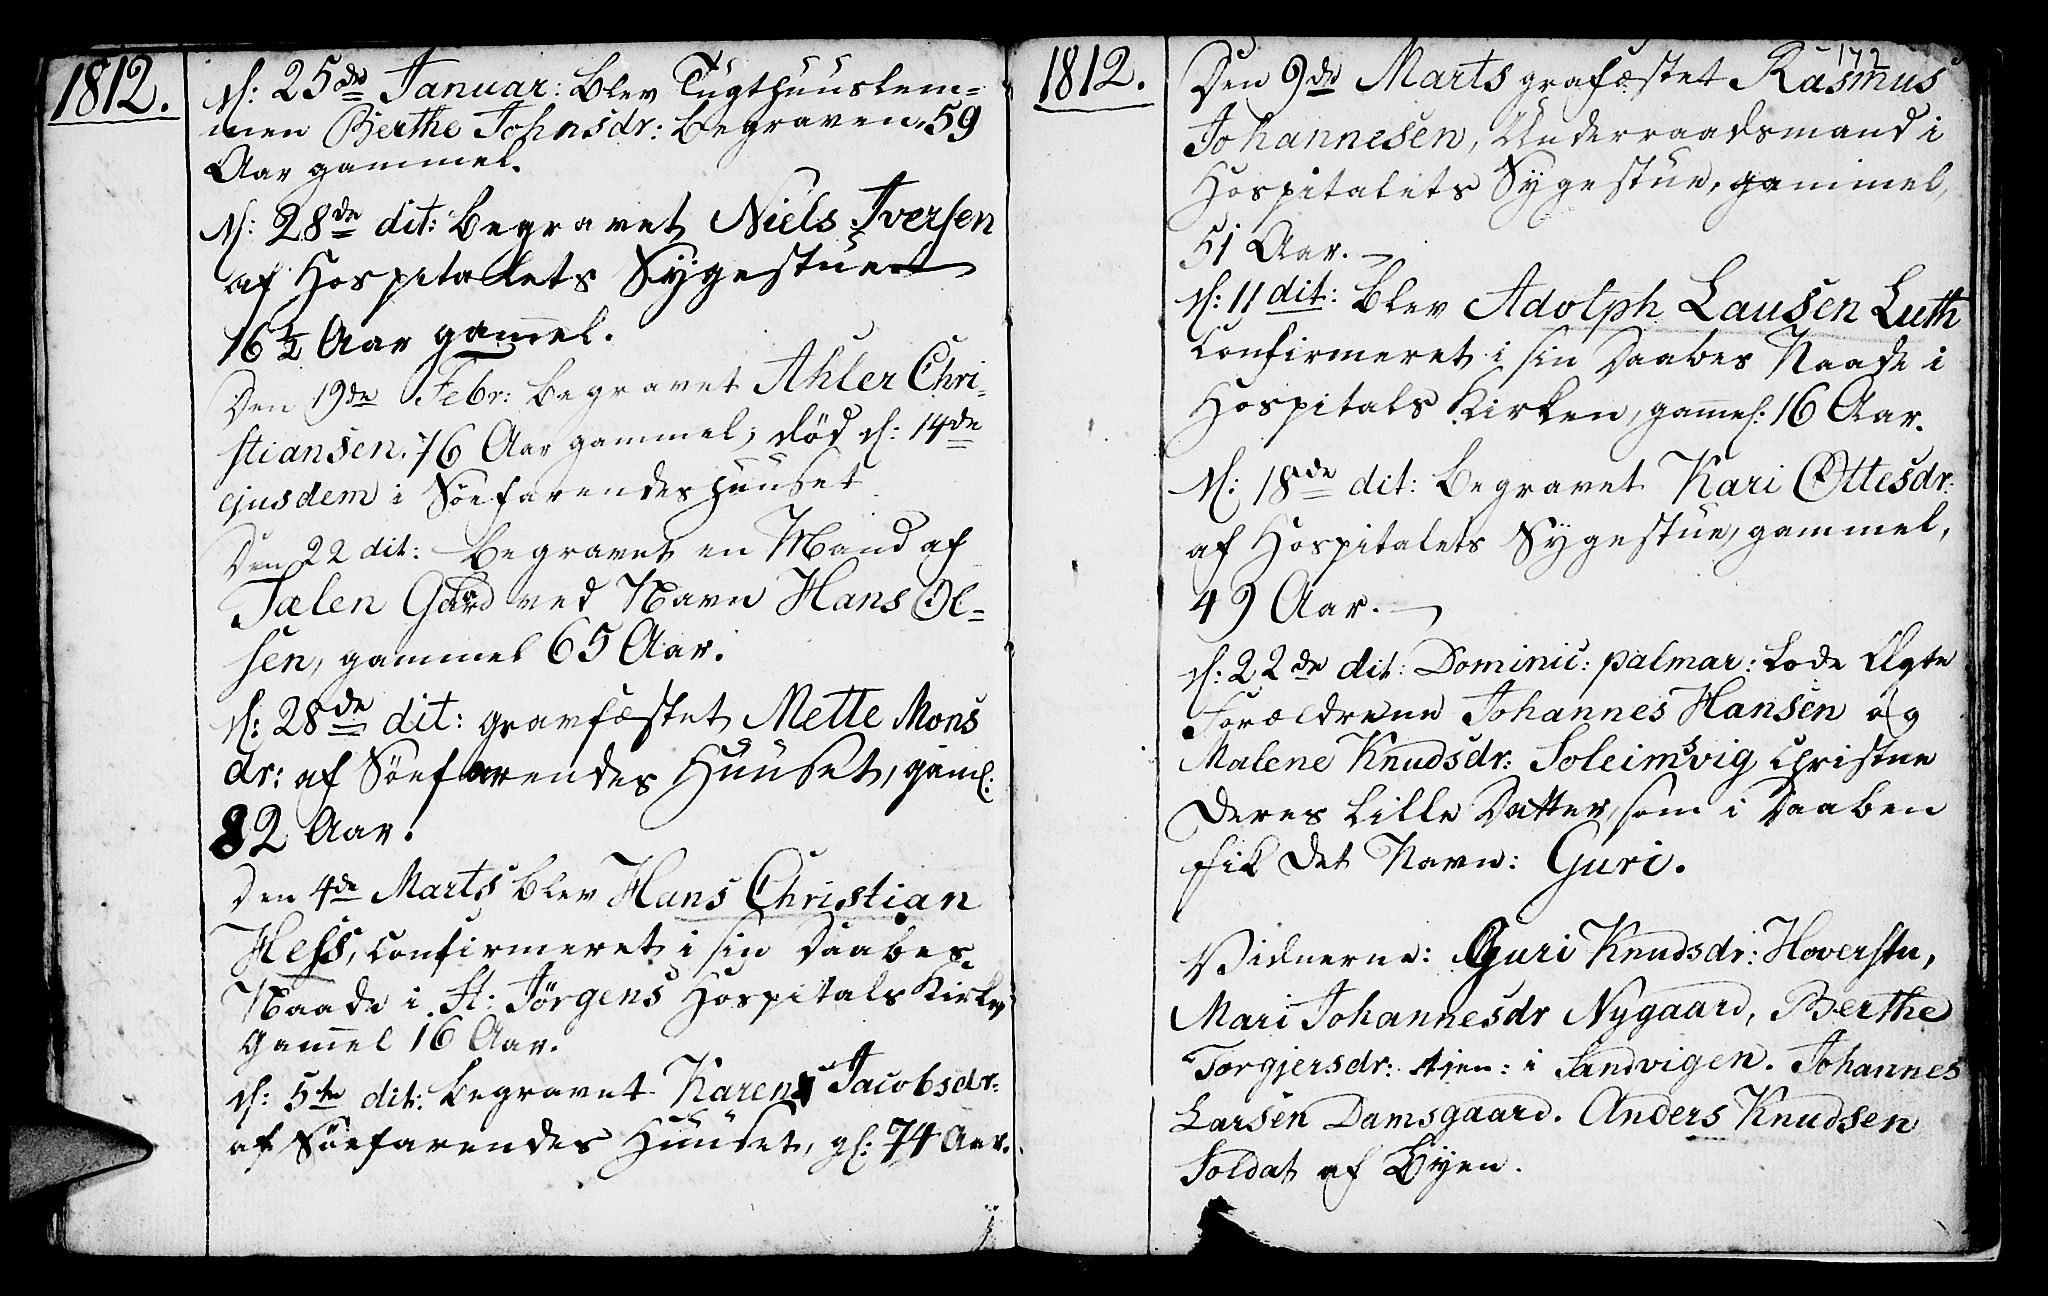 1812.
d: 25de Januar: blev Tugthuuslem=
men Berthe Johnsdr: begraven, 59
Aar gammel.
d: 28de dit: begravet Niels Iversen
af Hospitalets Sygestue
16 1/2 Aar gam̅el.
Den 19de Febr: begravet Ahler Chri-
stiansen, 76 Aar gammel, død d: 14de
ejusdem i Søefarendeshuuset
Den 22 dit: begravet en Mand af
Tælen Gaard ved Navn Hans Ol=
sen, gammel 65 Aar.
d: 28de dit: gravfæstet Mette Mons
dr: af Søefarendes Huuset, gaml:
82 Aar.
Den 4de Marts blev Hans Christian
Hess, confirmeret i sin Daabes
Naade i St: Jørgens Hospitals Kirke
Gam̅el 16 Aar.
d: 5te dit: begravet Karen Jacobsdr:
af Søefarendes Huuset, gl: 74 Aar.
172
1812.
Den 9de Marts grafæstet Rasmus
Johannesen, Underraadsmand i
Hospitalets Sygestue, gammel,
51 Aar.
d: 11 dit: blev Adolph Lausen Luth
confirmeret i sin Daabes Naade i
Hospitals Kirken, gam̅el: 16 Aar.
d: 18de dit: begravet Kari Ottesdr:
af Hospitalets Sygestue, gammel,
49 Aar.
d: 22de dit: Dominic: palmar: lode Ægte
Forældrene Johannes Hansen og
Malene Knudsdr: Soleimsvig christne
deres lille Datter, som i Daaben
fik det Navn: Guri.
Vidnerne: Guri Knudsdr: Hoversten,
Mari Johannesdr Nygaard, Berthe
Torgjersdr: tjen: i Sandvigen. Johannes
Larsen Damsgaard. Anders Knudsen
Soldat af Byen.